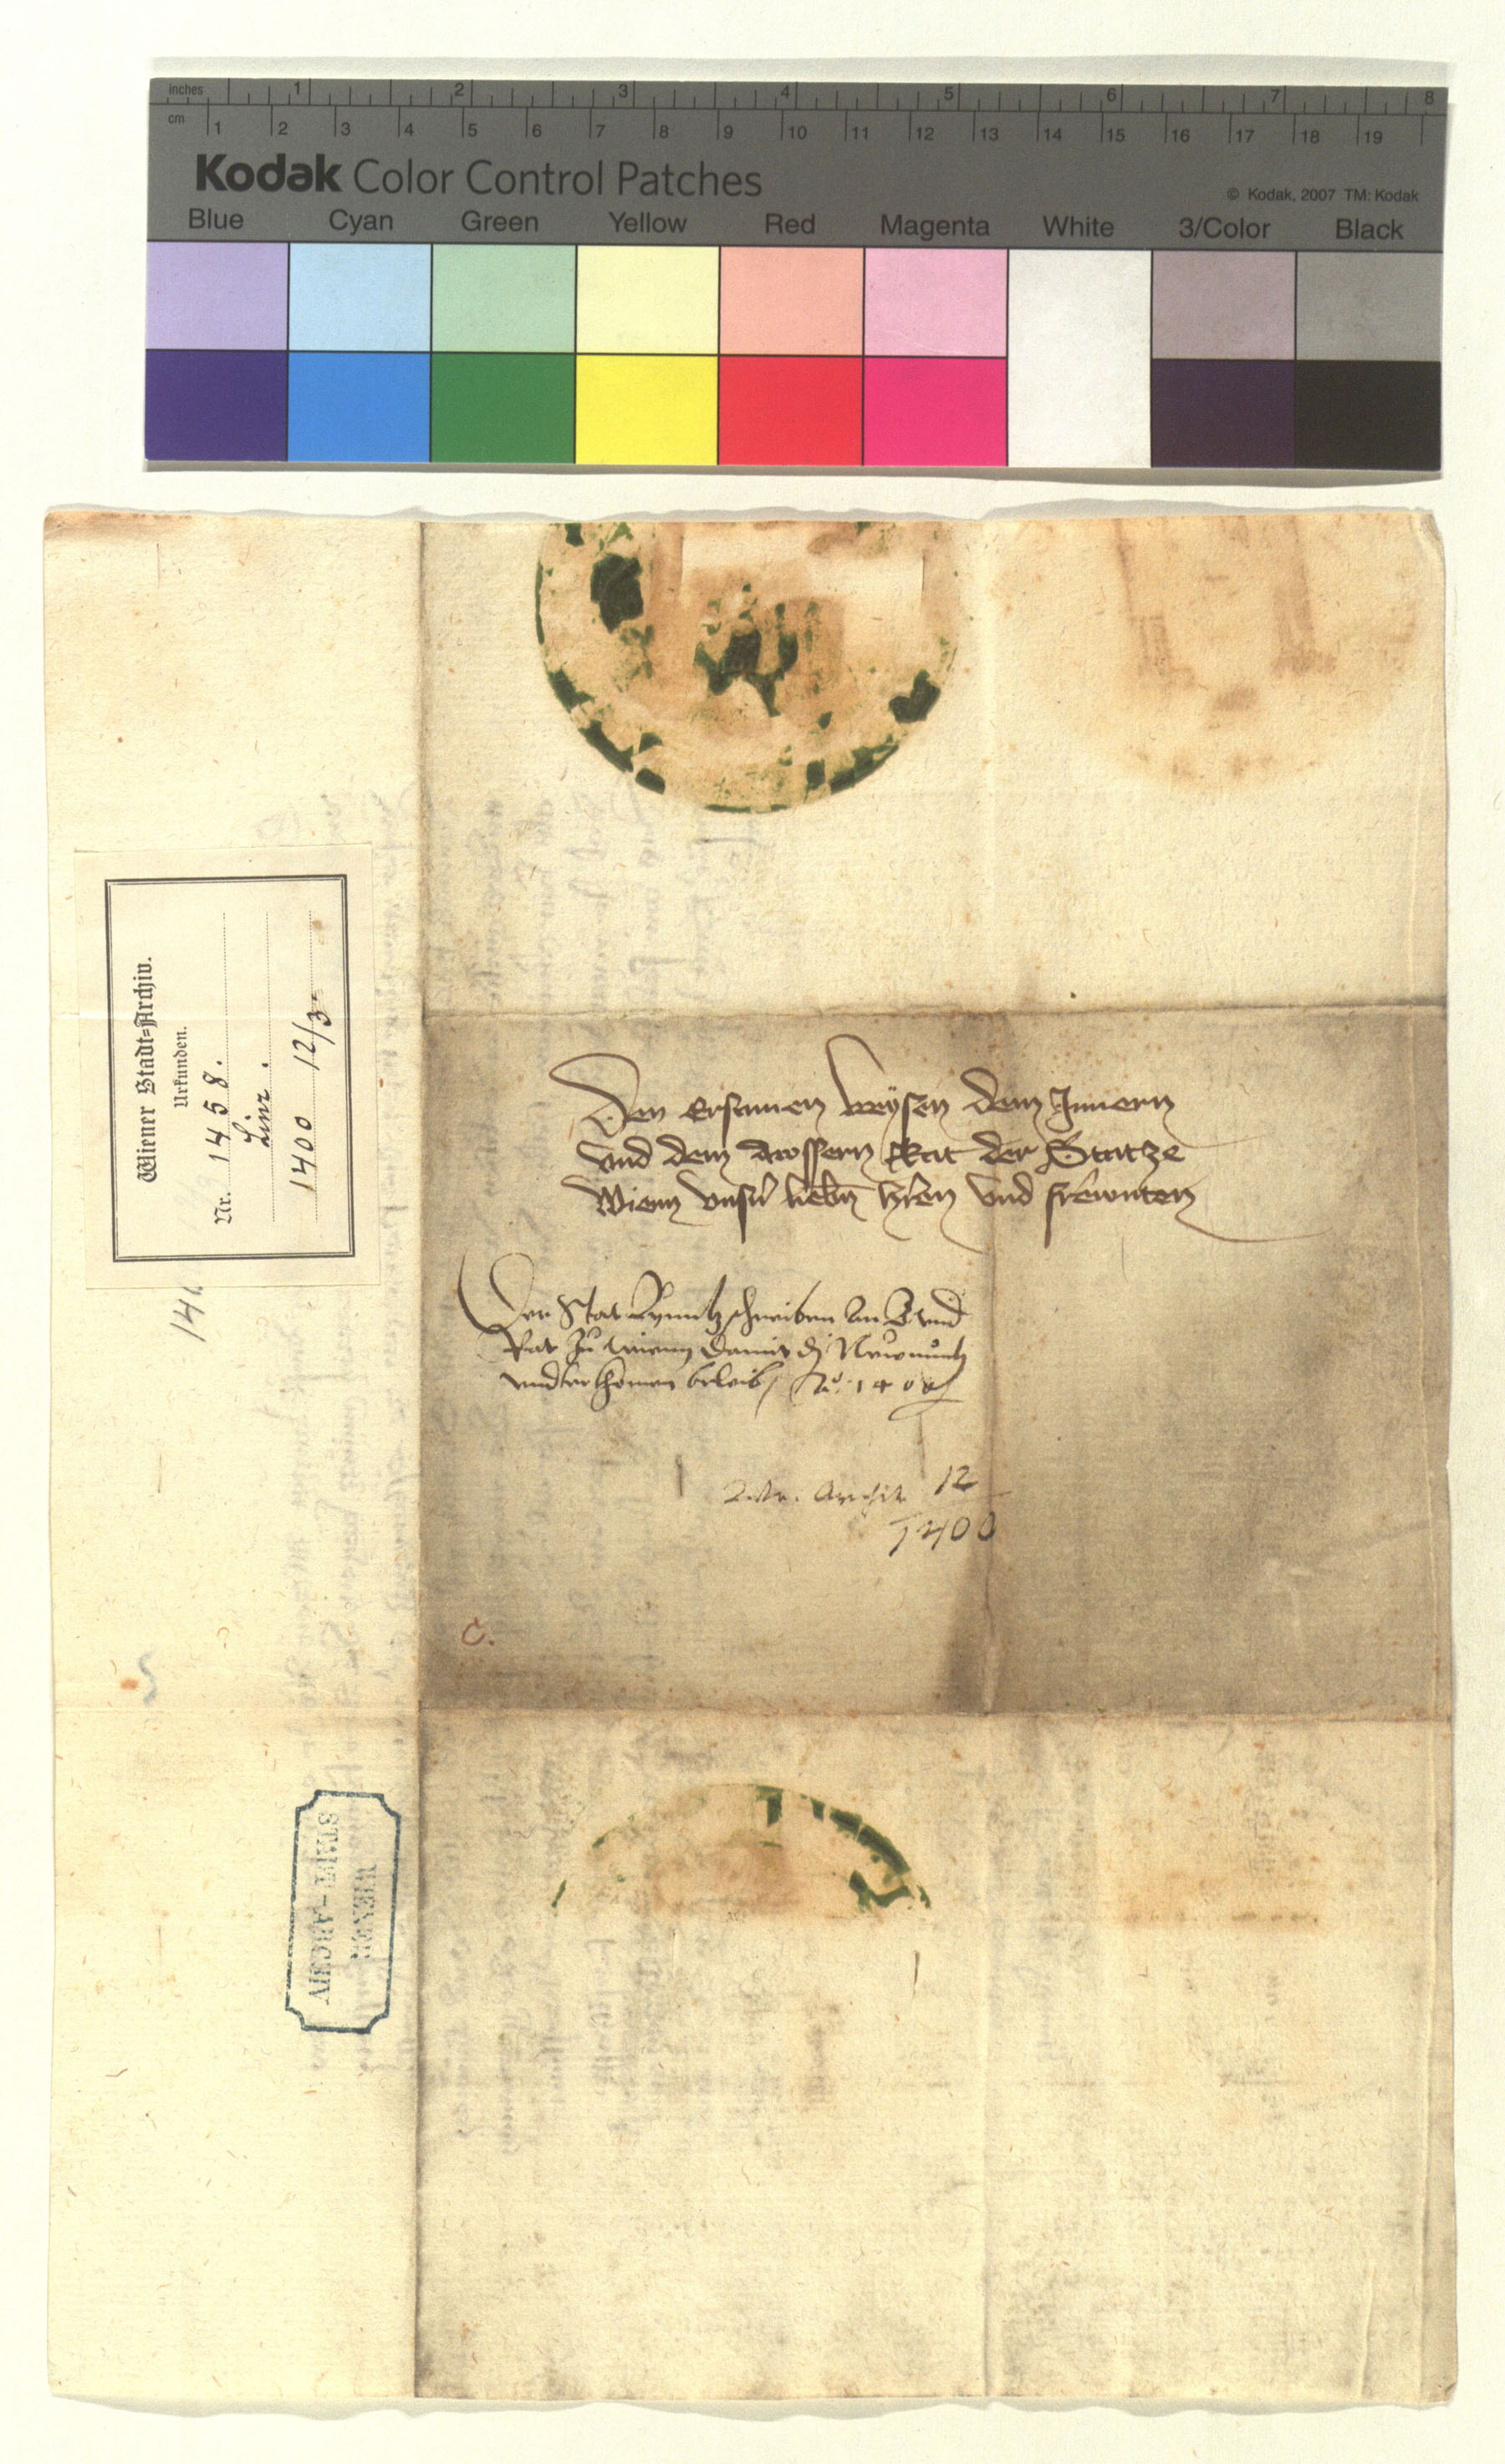 inches 1 2 3 4 5 6 7 8
cm 1 2 3 4 5 6 7 8 9 10 11 12 13 14 15 16 17 18 19
Kodak Color Control Patches
© Kodak, 2007 TM: Kodak
Blue Cyan Green Yellow Red Magenta White 3/Color Black
Wiener Stadt-Archiv.
Urkunden.
Nr. 1458.
Linz.
1400 12/3
Den Ersamen weysen dem Innern
vnd dem aussern Rat der Stat ze
Wienn vnsern liebn hren vnd frewnten
Der Stat Lynntz schreiben an B vnd
Rat zu Wienn damit di
vndterkhomen beleib
Archiv 12
1400
C.
WIENER
STADT-ARCHIV